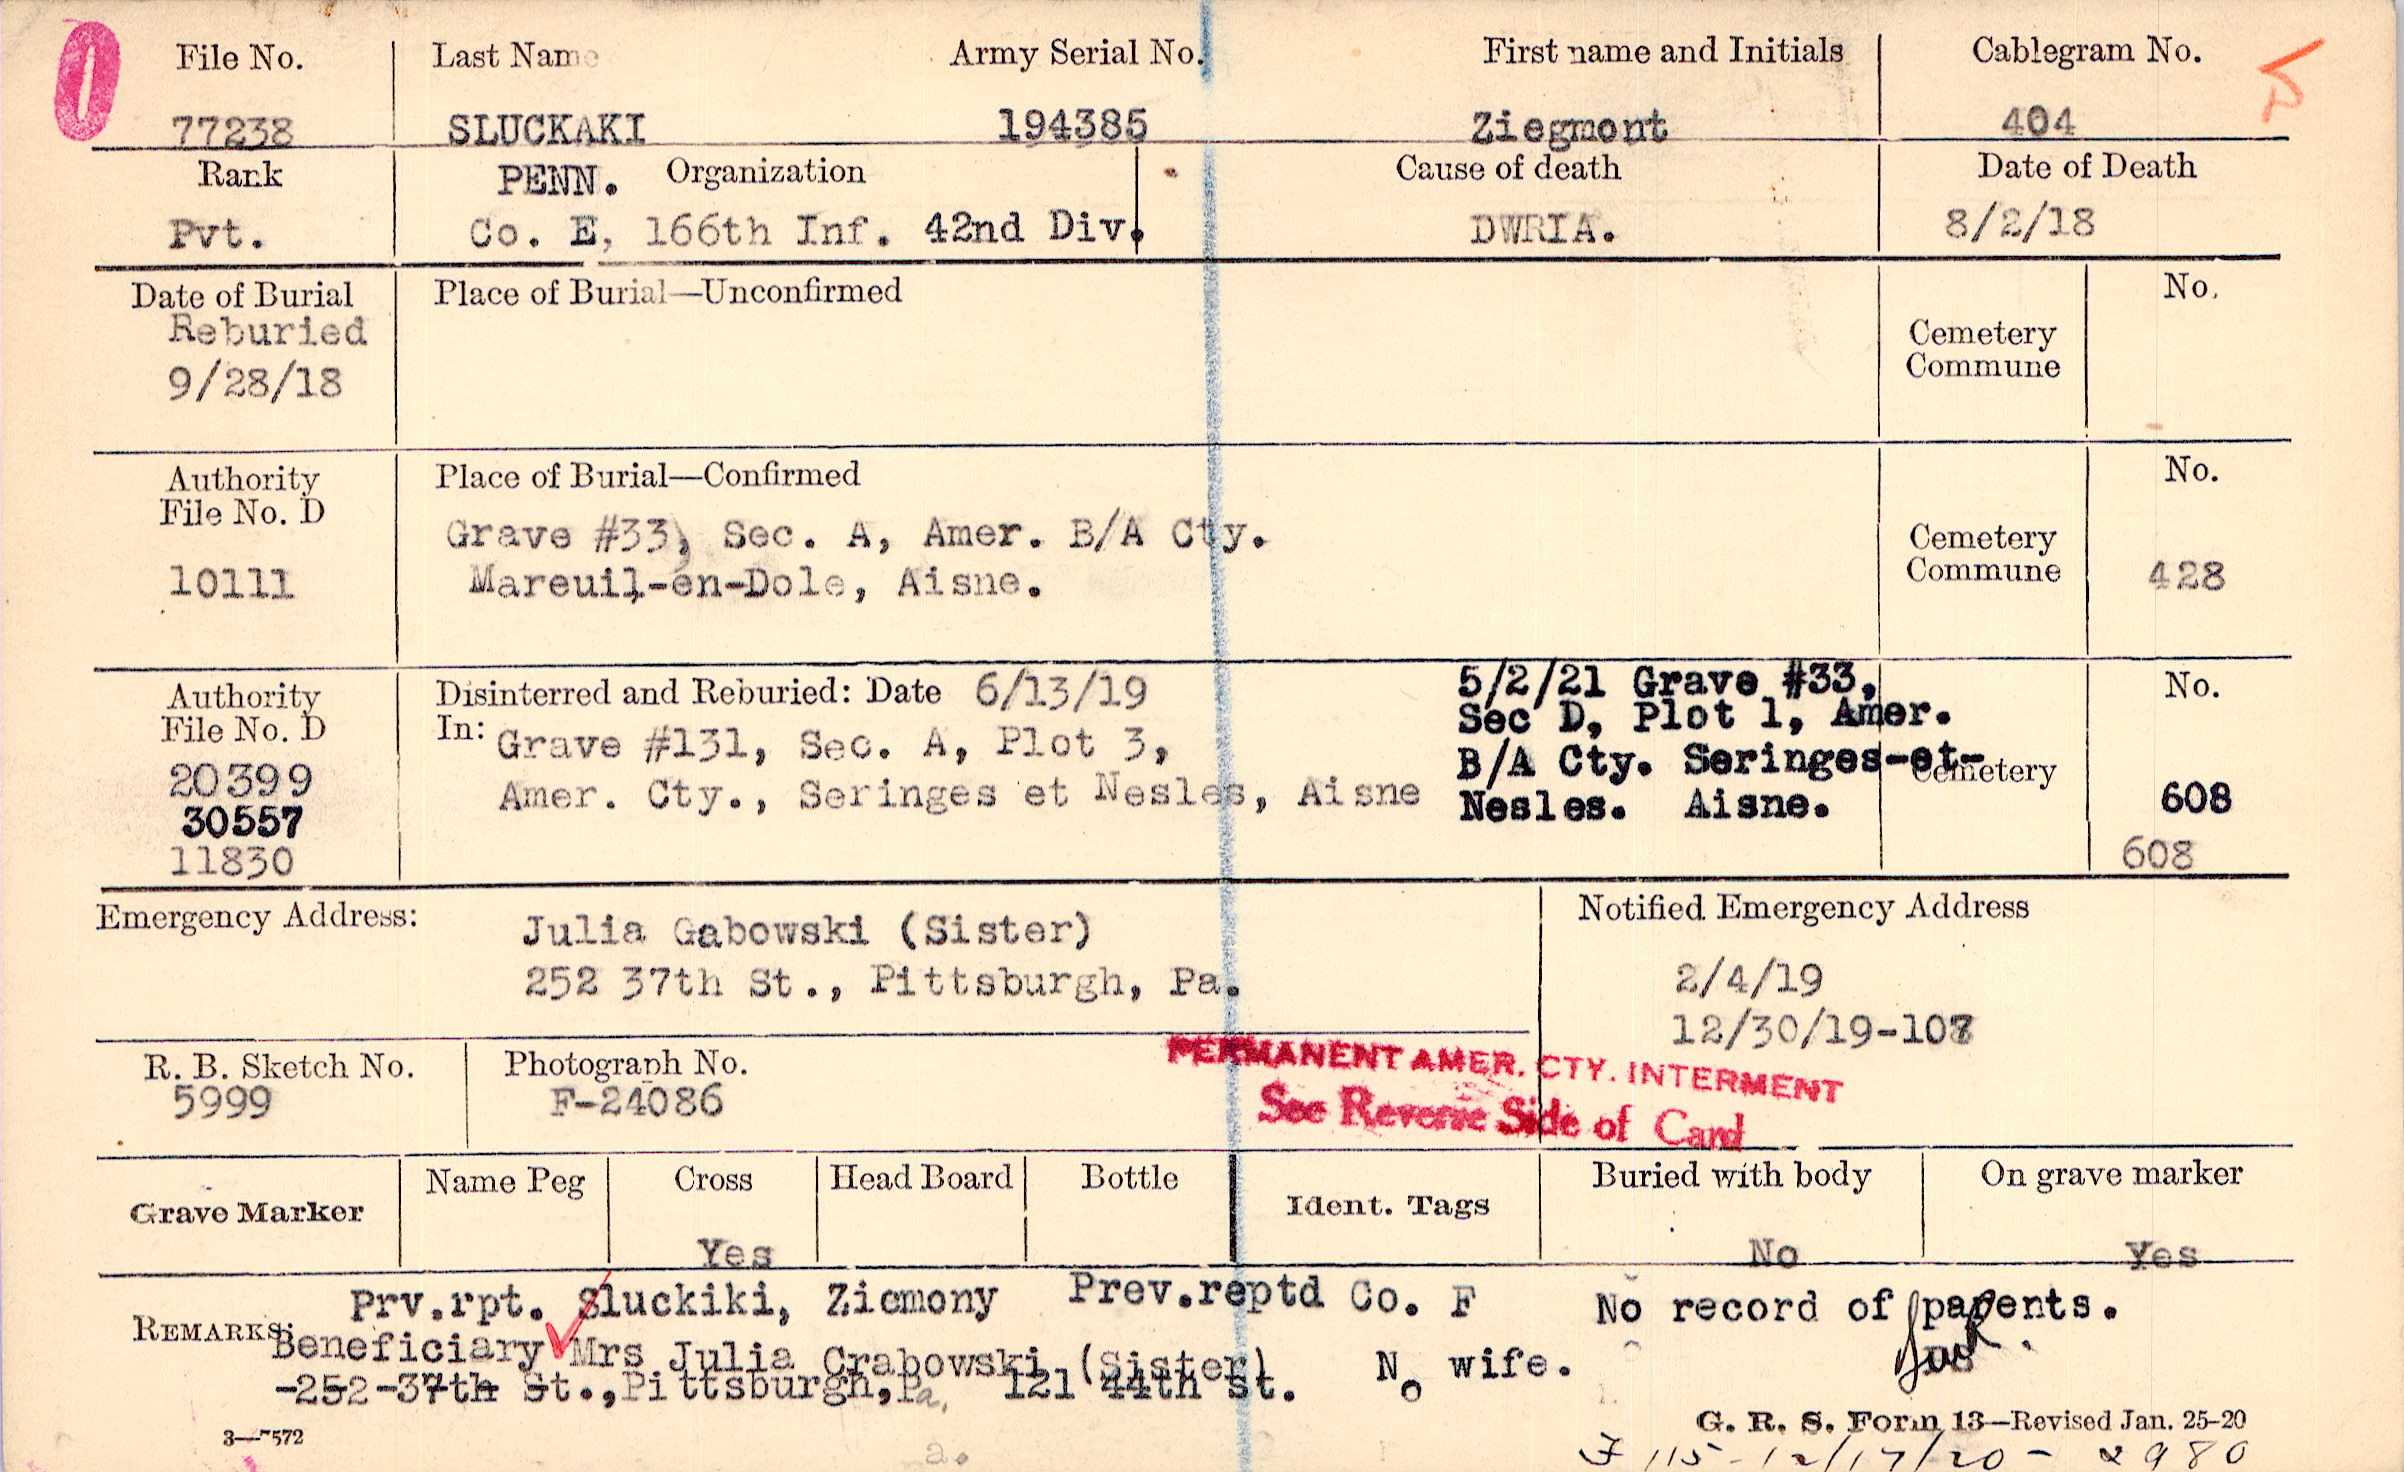 File No. Last Name Army Serial No. First name and Initials Cablegram No.
77238 SLUCKAKI 194385 Ziegmont 404
Rank PENN. Organization Cause of death Date of Death
Pvt. Co. E, 166th Inf. 42nd Div. DWRIA. 8/2/18
Date of Burial Place of Burial—Unconfirmed No.
Reburied
9/28/18
Cemetery
Commune
Authority Place of Burial—Confirmed No.
File No. D
Grave #33, Sec. A, Amer. B/A Cty. Cemetery
10111 Mareuil-en-Dole, Aisne. Commune 428
Authority Disinterred and Reburied: Date 6/13/19 5/2/21 Grave #33, No.
File No. D In: Grave #131, Sec. A, Plot 3, Sec D, Plot 1, Amer.
20399 Amer. Cty., Seringes et Nesles, Aisne B/A Cty. Seringes-et- Cemetery
30557 Nesles. Aisne. 608
11830 608
Emergency Address: Julia Gabowski (Sister) Notified Emergency Address
252 37th St., Pittsburgh, Pa. 2/4/19
12/30/19-107
R. B. Sketch No. Photograph No. PERMANENT AMER. CTY. INTERMENT
5999 F-24086 See Reverse Side of Card
Grave Marker Name Peg Cross Head Board Bottle Ident. Tags Buried with body On grave marker
Yes No Yes
Prv.rpt. Sluckiki, Zicmony Prev.reptd Co. F No record of parents.
REMARKS: Beneficiary Mrs Julia Grabowski (Sister) No wife.
-252-37th St.,Pittsburgh,Pa. 121 44th St.
3—7572 G. R. S. Form 13—Revised Jan. 25-20
115-12/17/20- 2980